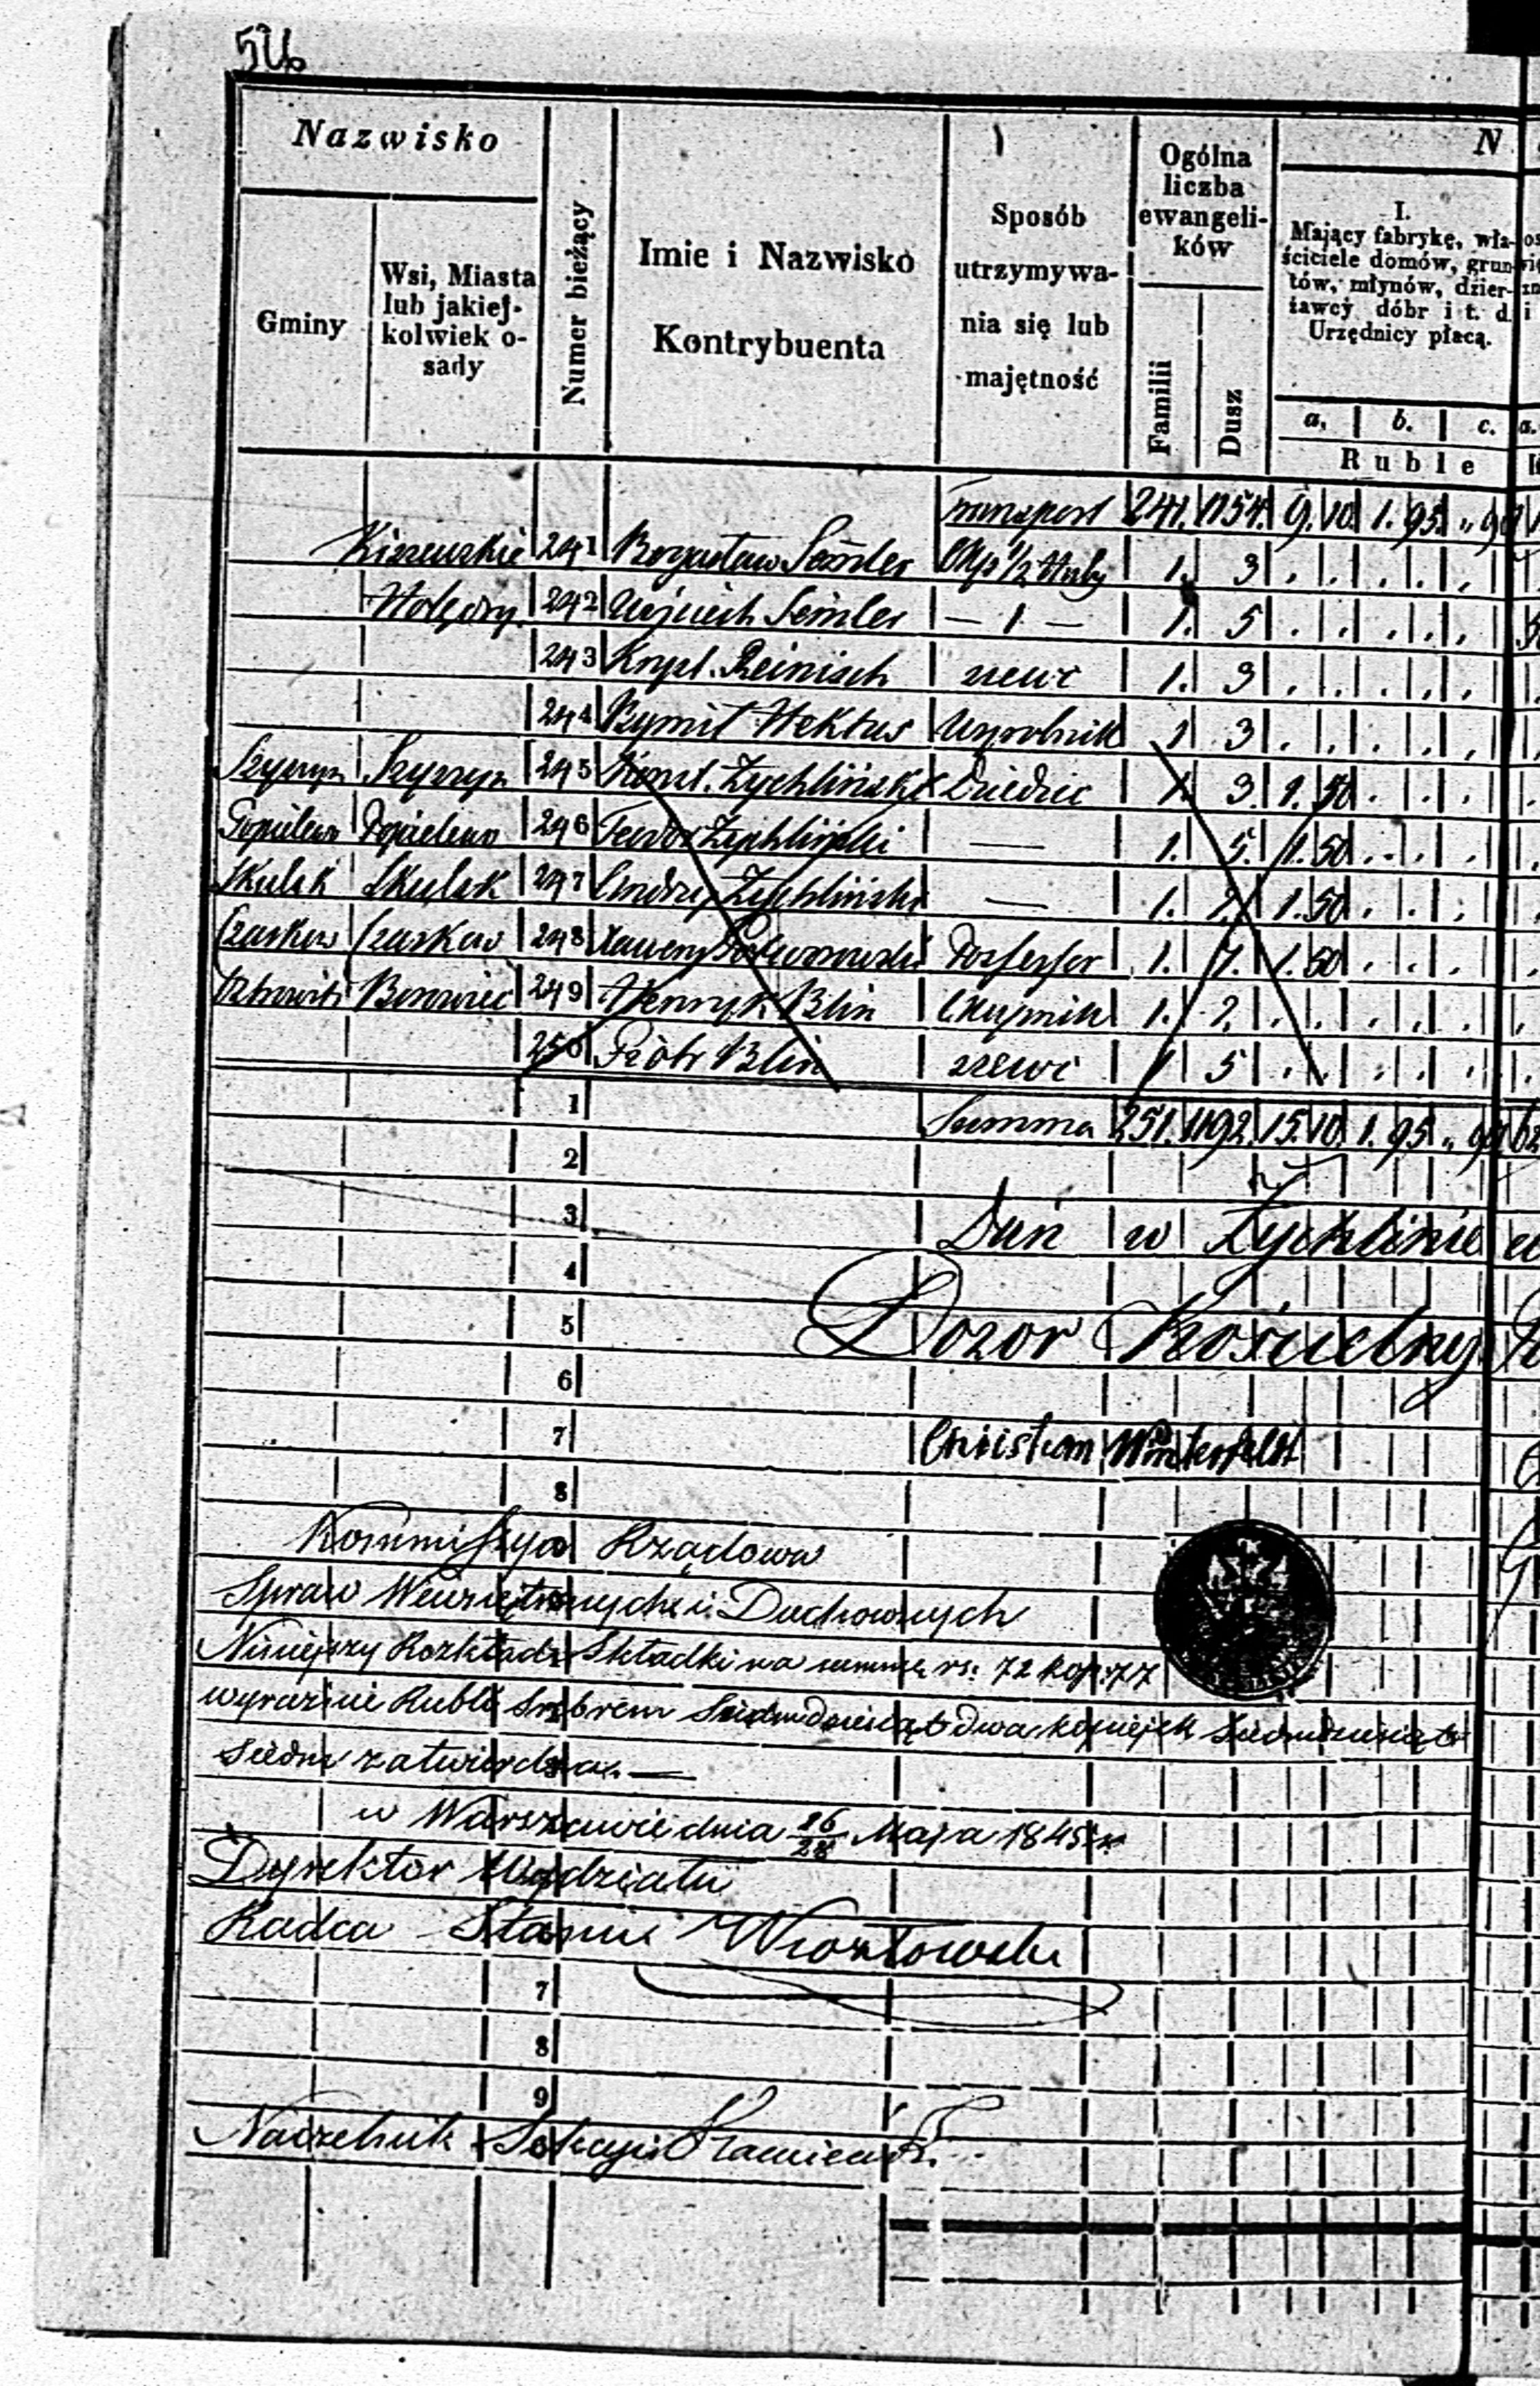 546
Nazwisko
Gminy
Wsi, Miasta
lub jakiej-
kolwiek o-
sady
Numer bieżący
Imie i Nazwisko
Kontrybuenta
Sposób
utrzymywa-
nia się lub
majętność
Ogólna
liczba
ewangeli-
ków
Familii
Dusz
N
I.
Mający fabrykę, wła-
ściciele domów, grun-
tów, młynów, dzier-
żawcy dóbr i t. d.
Urzędnicy płacą.
a. b. c. a.
Ruble
Transport 241. 1154. 9. 10. 1. 95. „ 90
Kiszewskie 241 Bogusław Semler Okup 1/2 Huby 1. 3
Holędry 242 Wojciech Semler — 1 — 1. 5
243 Kryst. Reinisch szewc 1. 3
244 Hektus Wyrobnik 1 3
245 Żychliński Dziedzic 1. 3 1. 50
246 Teodor Żychliński — 1. 5. 1. 50
Skulsk Skulsk 247 Andrzej Żychliński — 1. 2. 1. 50
Czarków Czarków 248 Xawery Possessor 1. 7. 1. 50
Borowiec 249 Henryk Blin Okupnik 1. 2.
250 Piotr Blin szewc 1 5
1 Summa 251. 1192. 15. 10. 1. 95. „ 90
2
3 Dań w Żychlinie
4
5 Dozor Kościelny
6
7 Christian Winterfeldt
8
Kommissya Rządowa
Spraw Wewnętrznych i Duchownych
Niniejszy Rozkład Składki na summę rs: 72 kop: 77
wyraźnie Rubli Srebrem Siedmdziesiąt dwa kopiejek Siedmdziesiąt
Siedm zatwierdza. —
w Warszawie dnia 16/28 Maja 1845 r.
Dyrektor Wydziału
Radca Stanu
7
8
9
Naczelnik Sekcyi